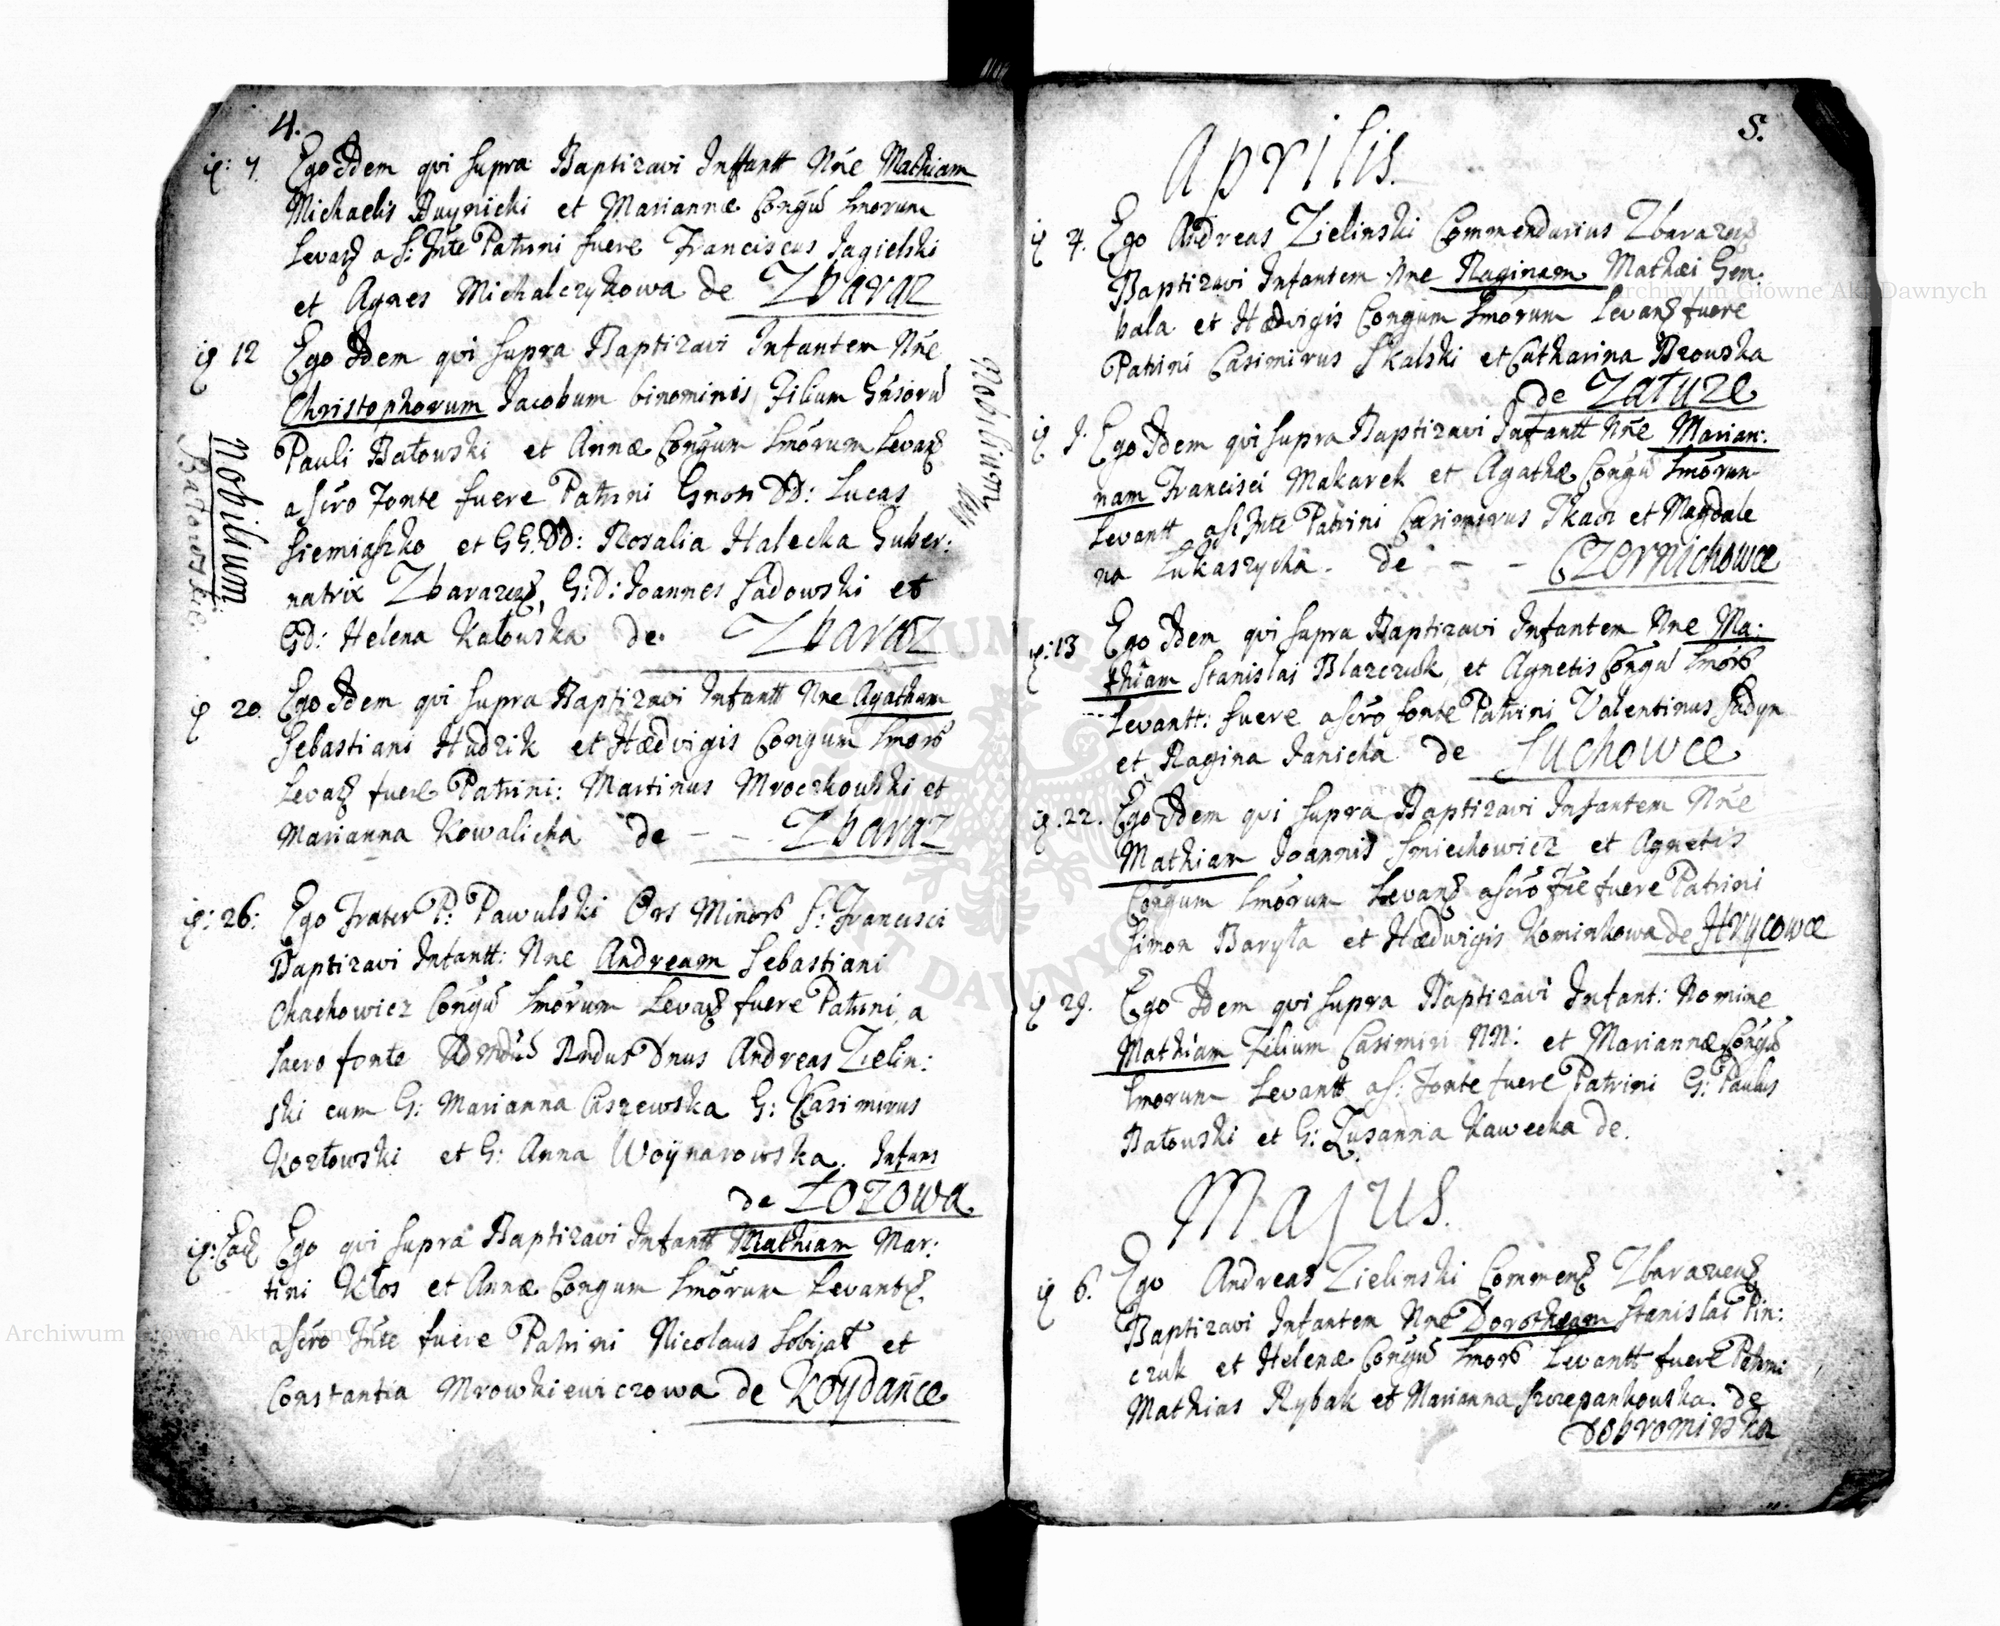 4.
7. Ego Idem qvi supra Baptizavi Infantt Nne Mathiam
Michaelis Buynicki et Mariannæ Cong̃u Lmorum
Levan a S: Fnte Patrini fuere Franciscus Jagielski
et Agnes Michalczykowa de Zbaraz
12 Ego Idem qui supra Baptizavi Infantem Nñe
Christophorum Jacobum binominis Filium Gñsoru
Pauli Batowski et Annæ Congum Lmõrum Levan
a Scro Fonte fuere Patrini Gnosi DD: Lucas
Siemiaszko et GG.DD: Rosalia Halecka Guber:
natrix Zbarazen, G:D: Joannes Sadowski et
GD: Helena Katouska de Zbaraz
Nobilium
Nobilium
20. Ego Idem qvi supra Baptizavi Infantt Nne Agatham
Sebastiani Hudzik et Hædvigis Congum Lmor
Levan fuere Patrini: Martinus Mroczkowski et
Marianna Kowalicha de – – Zbaraz
26: Ego Frater P: Pawulski Ors Minor S: Francisci
Baptizavi Infantt: Nne Andream Sebastiani
Chachowicz Cong̃u Lmõrum Levan fuere Patrini, a
Sacro fonte Andreas Zielin:
ski cum G: Marianna Ciszewska G: Casimirus
Kozłowski et G: Anna Woÿnarowska. Infans
de Łozowa.
Ego qvi supra Baptizavi Infantt Mathiam Mar:
tini Kłos et Annæ Congum Lmõrum Levant
a Scro Fnte fuere Patrini Nicolaus Sobijat et
Constantia Mrowkiewiczowa de Koydañce
5.
Aprilis.
4. Ego Andreas Zielinski Commendarius Zbarazen
Baptizavi Infantem Nne Raginam Mathæi Gem:
bala et Hædvigis Congum Lmõrum Levan fuere
Patrini Casimirus Skalski et Catharina Brouska
de Załuze
9. Ego Idem qvi supra Baptizavi Infantt Nñe Marian:
nam Francisci Makarek et Agathæ Cong̃u Lmõrum
Levantt a S: Fnte Patrini Casimirus Tkacz et Magdale
na Łukaszycha. de – – Czernichowce
13 Ego Idem qvi supra Baptizavi Infantem Nne Ma:
thiam Stanislai Blazczuk, et Agnetis Cong̃u Lmor
Levantt: fuere a Scro fonte Patrini Valentinus Sadyn
et Ragina Janicha de Suchowce
22. Ego Idem qui supra Baptizavi Infantem Nñe
Mathiam Joannis Smiechowicz et Agnetis
Congum Lmõrum Levan a Scro Fñe fuere Patrini
Simon Baryła et Hædwigis Kominkowa de Hrycowce
29. Ego Idem qvi supra Baptizavi Infant: Nomine
Mathiam Filium Casimiri NN: et Mariannæ Cong̃u
Lmorum Levantt a S: Fonte fuere Patrini G: Paulus
Batouski et G: Zusanna Kawecka de.
Majus.
6. Ego Andreas Zielinski Commen Zbarazen
Baptizavi Infantem Nne Dorotheam Stanislai Pin:
czuk et Helenæ Cong̃u Lmor Levantt fuere Patrini
Mathias Rybak et Marianna Szczepankouska. de
Dobromirka
Archiwum Główne Akt Dawnych
Archiwum Główne Akt Dawnych